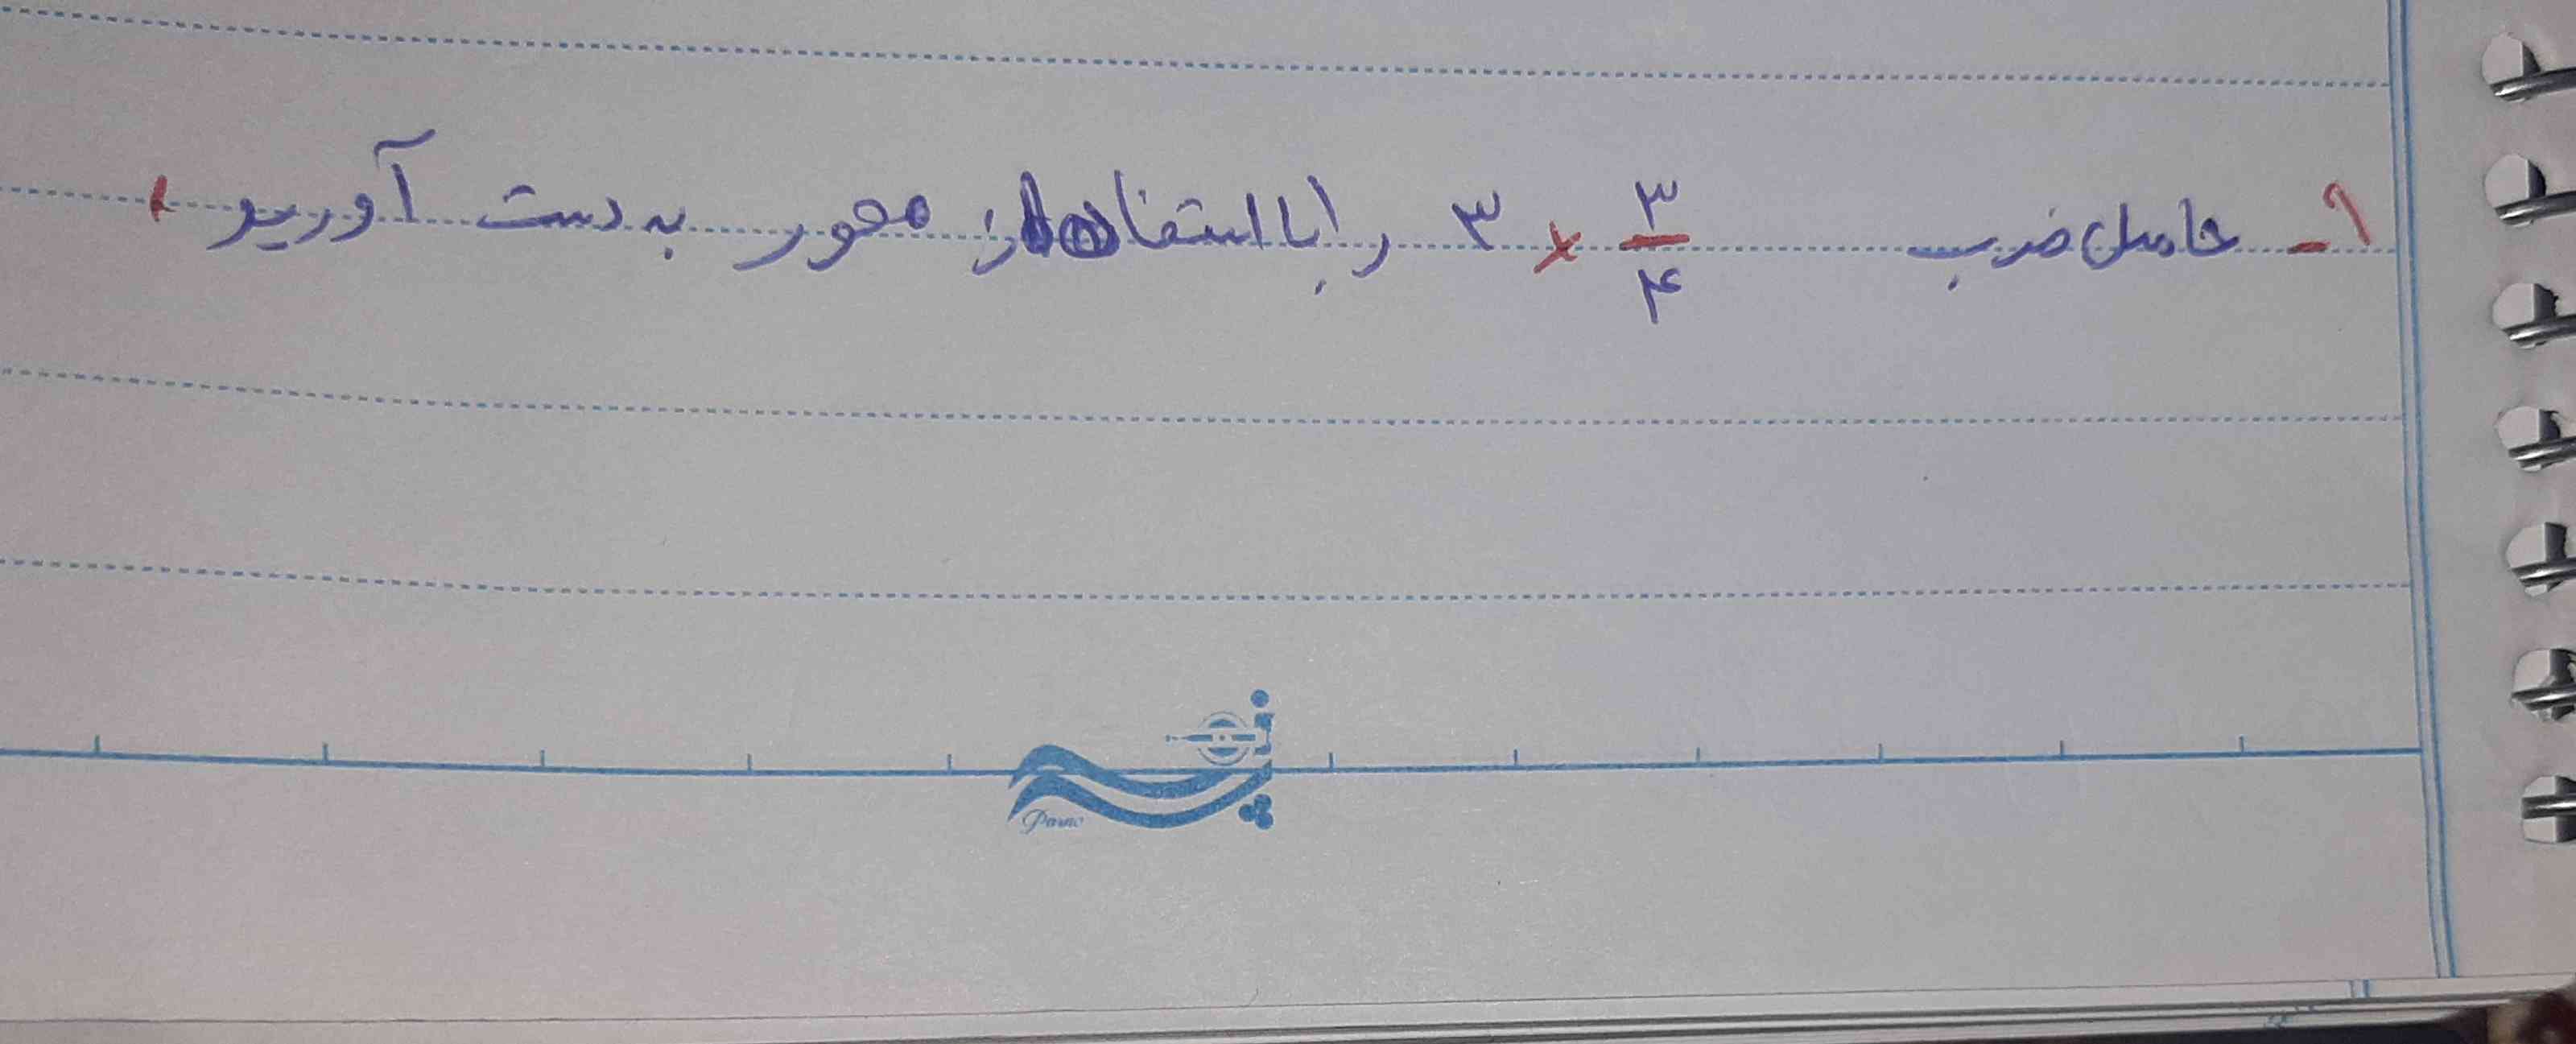 ۹- حاصل ضرب ۳/۴ × ۳ را با استفاده از محور به دست آورید.
Parno